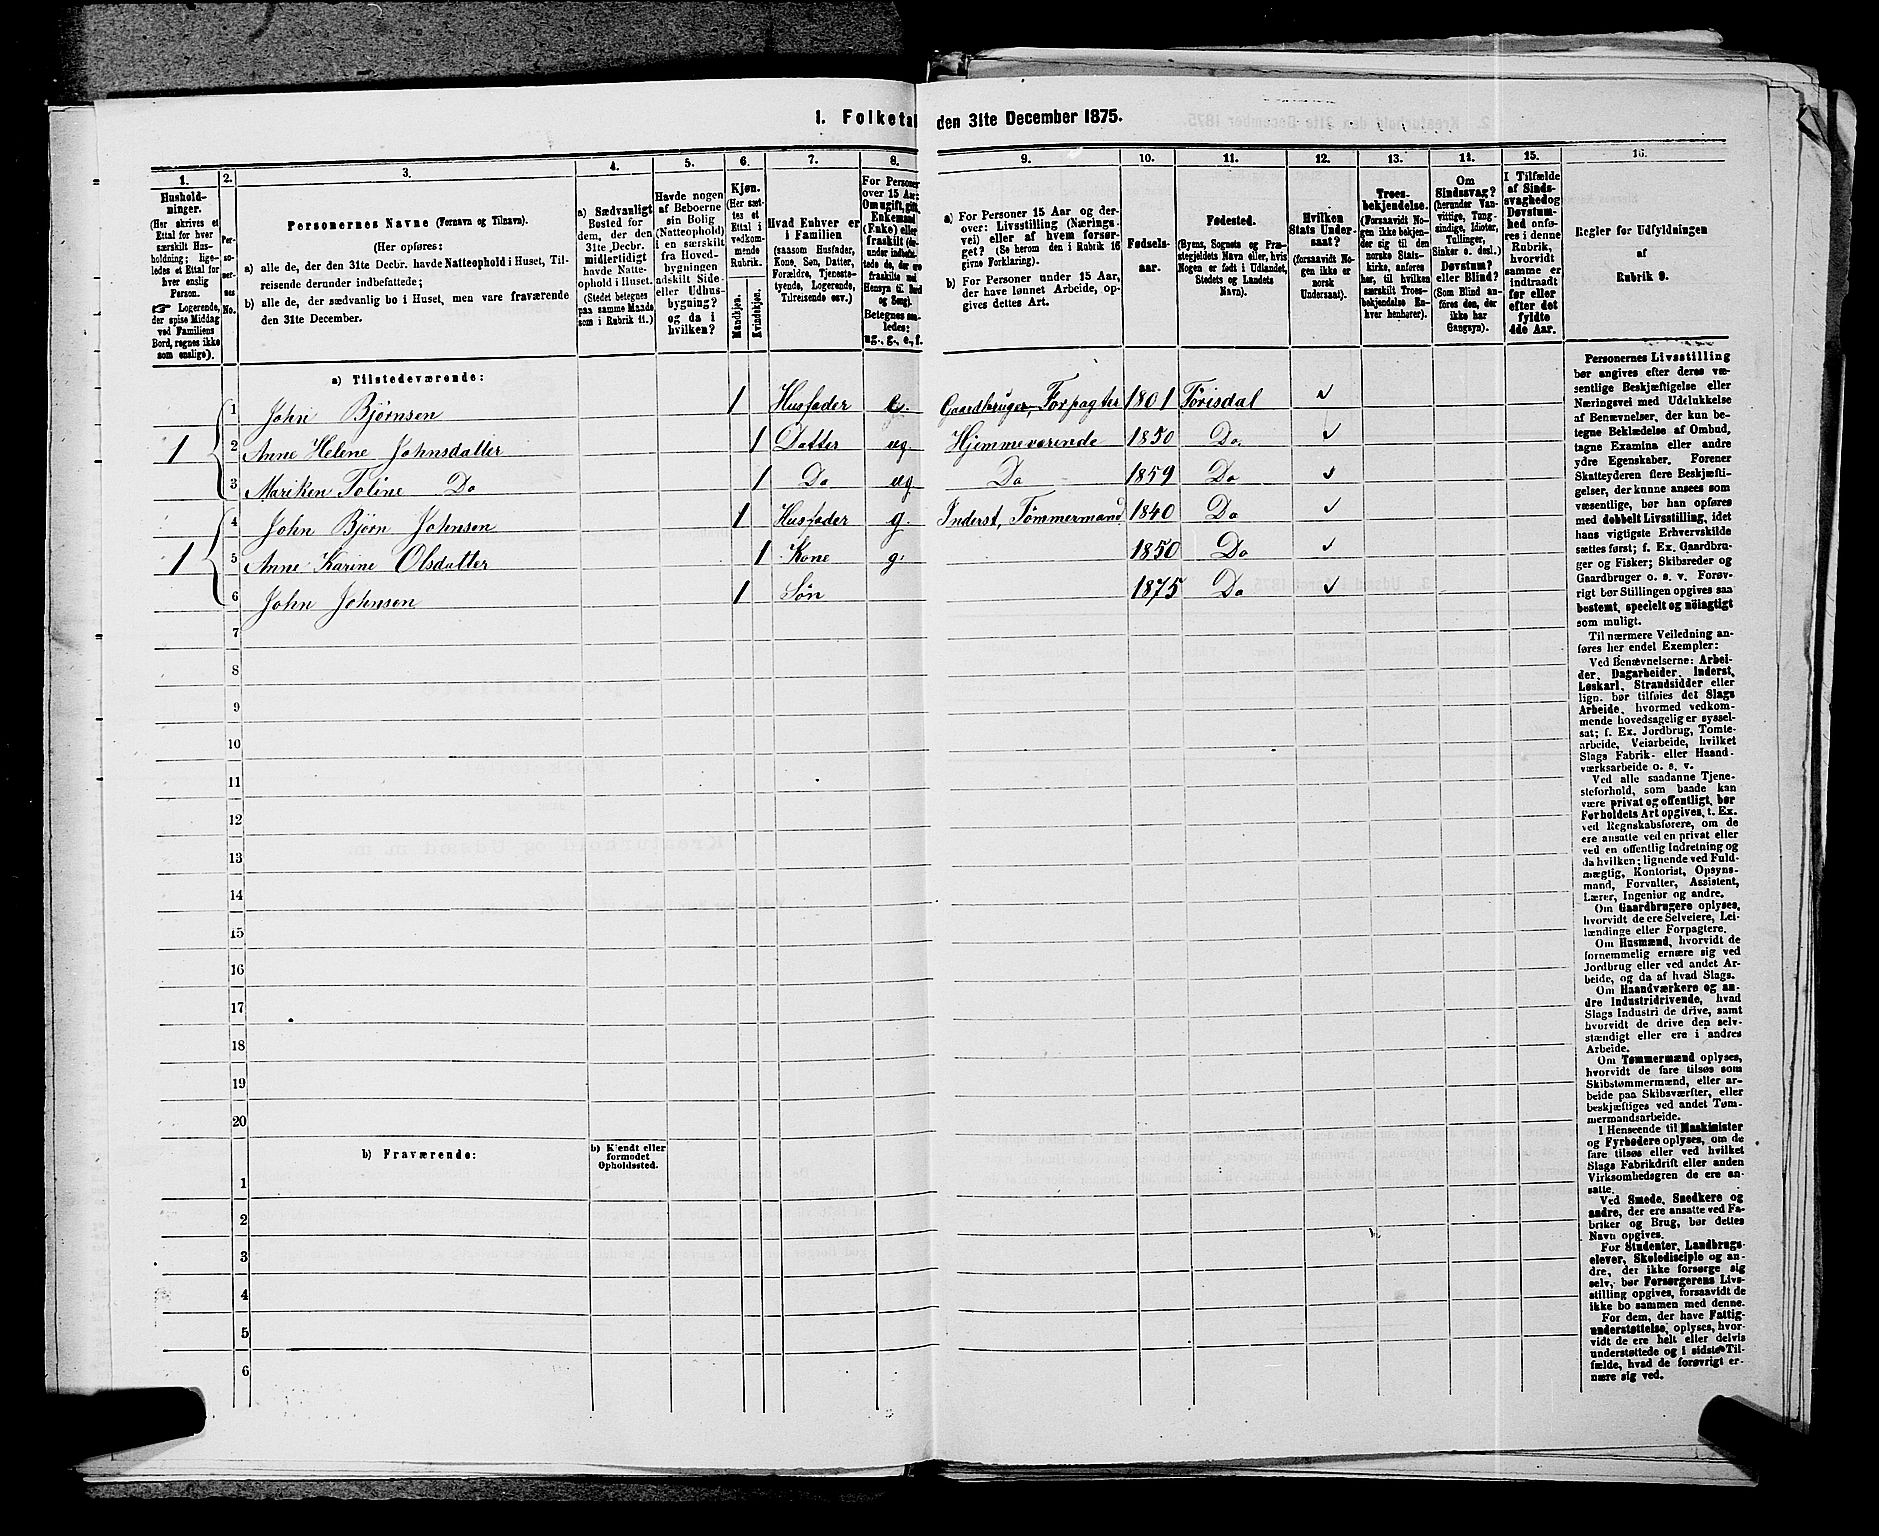 1. Folketal den 31te December 1875.
1. 2. 3. 4. 5. 6. 7. 8. 9. 10. 11. 12. 13. 14. 15. 16.
Hushold-
ninger.
(Her skrives et
Ettal for hver
særskilt Hus-
holdning; lige-
ledes et Ettal for
hver enslig
Person.
☞ Logerende,
der spise Middag
ved Familiens
Bord, regnes ikke
som enslige).
Per-
so-
ner-
nes
No.
Personernes Navne (Fornavn og Tilnavn).
(Her opføres:
a) alle de, der den 31te Decbr. havde Natteophold i Huset, Til-
reisende derunder indbefattede;
b) alle de, der sædvanlig bo i Huset, men vare fraværende
den 31te December.
a) Sædvanligt
Bosted for
dem, der den
31te Decbr.
midlertidigt
havde Natte-
ophold i Huset.
(Stedet betegnes
paa samme Maade
som i Rubrik 11.)
Havde nogen
af Beboerne
sin Bolig
(Natteophold)
i en særskilt
fra Hoved-
bygningen
adskilt Side-
eller Udhus-
bygning?
og da i
hvilken?
Kjøn.
(Her sæt-
tes et
Ettal i
vedkom-
mende
Rubrik.
Mandkjøn.
Kvindekjøn.
Hvad Enhver er
i Familien
(saasom Husfader,
Kone, Søn, Datter,
Forældre, Tjeneste-
tyende, Logerende,
Tilreisende osv.)
For Personer
over 15 Aar:
Om ugift, gift,
Enkemand
(Enke) eller
fraskilt (der-
under indbefat-
tede de, der ere
fraskilte med
Hensyn til Bord
og Seng).
Betegnes saa-
ledes:
ug., g., e., f.
a) For Personer 15 Aar og der-
over: Livsstilling (Nærings-
vei) eller af hvem forsør-
get? (Se herom den i Rubrik 16
givne Forklaring).
b) For Personer under 15 Aar,
der have lønnet Arbeide, op-
gives dettes Art.
Fødsels-
aar.
Fødested.
(Byens, Sognets og Præ-
stegjeldets Navn eller, hvis
Nogen er født i Udlandet,
Stedets og Landets
Navn).
Hvilken
Stats Under-
saat?
(forsaavidt No-
gen ikke er
norsk
Undersaat).
Troes-
bekjendelse.
(Forsaavidt No-
gen ikke bekjen-
der sig til den
norske Stats-
kirke, anføres
her, til hvilken
særskilt Troes-
bekjendelse En-
hver henhører).
Om
Sindssvag?
(herunder Van-
vittige, Tung-
sindige, Idioter,
Tullinger,
Sinker o. desl.)
Døvstum?
eller Blind?
(Som Blind an-
føres den, der
ikke har
Gangsyn).
I Tilfælde
af Sinds-
svaghed og
Døvstum-
hed onfø-
res i denne
Rubrik,
hvorvidt
samme er
indtraadt
før eller
efter det
fyldte
4de Aar.
Regler for Udfyldningen
af
Rubrik 9.
a) Tilstedeværende:
1 1 John Bjørnsen 1 Husfader e. Gaardbruger, Forpagter 1801 Tørisdal
2 Anne Helene Johnsdatter 1 Datter ug Hjemmeværende 1850 Do.
3 Mariken Toline Do 1 Do ug Do 1859 Do
1 4 John Bjørn Johnsen 1 Husfader g. Inderst, Tømmermand 1840 Do
5 Anne Karine Olsdatter 1 Kone g. 1850 Do
6 John Johnsen 1 Søn 1875 Do
7
8
9
10
11
12
13
14
15
16
17
18
19
20
b) Fraværende:
b) Kjendt eller
formodet
Opholdssted.
1
2
3
4
5
6
Personernes Livsstilling
bør angives efter deres væ-
sentlige Beskjæftigelse eller
Næringsvei med Udelukkelse
af Benævnelser, der kun be-
tegne Beklædelse af Ombud,
tagne Examina eller andre
ydre Egenskaber. Forener
Skatteyderen flere Beskjæfti-
gelser, der kunne ansees som
væsentlige, bør han opføres
med dobbelt Livsstilling, idet
hans vigtigste Erhvervskilde
sættes først; f. Ex. Gaardbru-
ger og Fisker; Skibsreder og
Gaardbruger o. s. v. Forøv-
rigt bør Stillingen opgives saa
bestemt, specielt og nöiagtigt
som muligt.
Til nærmere Veiledning an-
føres her endel Exempler:
Ved Benævnelserne: Arbei-
der, Dagarbeider, Inderst,
Løskarl, Strandsidder eller
lign. bør tilføies det Slags
Arbeide, hvormed vedkom-
mende hovedsagelig er syssel-
sat; f. Ex. Jordbrug, Tomte-
arbeide, Veiarbeide, hvilket
Slags Fabrik- eller Haand-
værksarbeide o. s. v.
Ved alle saadanne Tjene-
steforhold, som baade kan
være privat og offentligt, bør
Forholdets Art opgives, t. Ex.
ved Regnskabsførere, om de
ere ansatte ved en privat eller
ved en offentlig Indretning og
da hvilken; lignende ved Fuld-
mægtig, Kontorist, Opsyns-
mand, Forvalter, Assistent,
Lærer, Ingeniør og andre.
Om Gaardbrugere oplyses,
hvorvidt de ere Selveiere, Lei-
lændinge eller Forpagtere.
Om Husmænd, hvorvidt de
fornemmelig ernære sig ved
Jordbrug eller ved andet Ar-
beide, og da af hvad Slags.
Om Haandværkere og an-
dre Industridrivende, hvad
Slags Industri de drive, samt
hvorvidt de drive den selv-
stændigt eller ere i andres
Arbeide.
Om Tømmermænd oplyses,
hvorvidt de fare tilsøs som
Skibstømmermænd, eller ar-
beide paa Skibsværfter, eller
beskjæftiges ved andet Tøm-
mermandsarbeide.
I Henseende til Maskinister
og Fyrbødere oplyses, om de
fare tilsøs eller ved hvilket
Slags Fabrikdrift eller anden
Virksomhedsgren de ere an-
satte.
Ved Smede, Snedkere og
andre, der ere ansatte ved Fa-
briker og Brug, bør dettes
Navn opgives.
For Studenter, Landbrugs-
elever, Skoledisciple og an-
dre, der ikke forsørge sig
selv, bør Forsørgerens Livs-
stilling opgives, forsaavidt de
ikke bo sammen med denne.
For dem, der have Fattig-
understøttelse, oplyses, hvor-
vidt de ere helt eller delvis
understøttede og i sidste Til-
fælde, hvad de forøvrigt er-
nære sig ved.